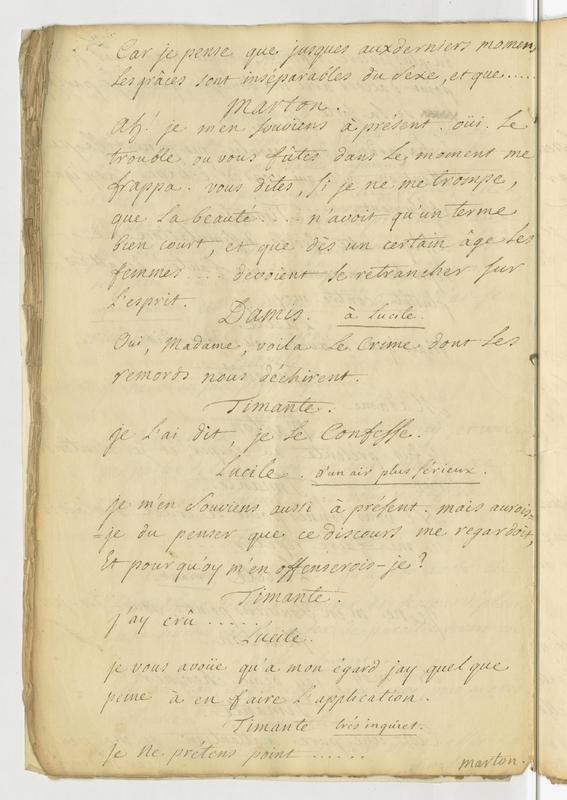 Car je pense que jusques aux derniers momens
les grâces sont inséparables du Sexe, et que .....
Marton.
Ah! je m'en souviens à présent. oüi. Le
trouble ou vous fûtes dans le moment me
frappa. vous dites, si je ne me trompe,
que la beauté .... n'avoit qu'un terme
bien court, et que dès un certain âge les
femmes .... devoient se retrancher sur
l'esprit.
Damis. à Lucile.
Oui, Madame, voila le Crime dont les
remords nous déchirent.
Timante.
je l'ai dit, je le Confesse.
Lucile. d'un air plus sérieux.
je m'en souviens aussi à présent. mais aurois=
=je du penser que ce discours me regardoit,
Et pourquoy m'en offenserois-je?
Timante.
j'ay crû ......
Lucile.
je vous avoüe qu'a mon égard jay quelque
peine à en faire l'application.
Timante très inquiet.
Je ne prétens point ......
marton.